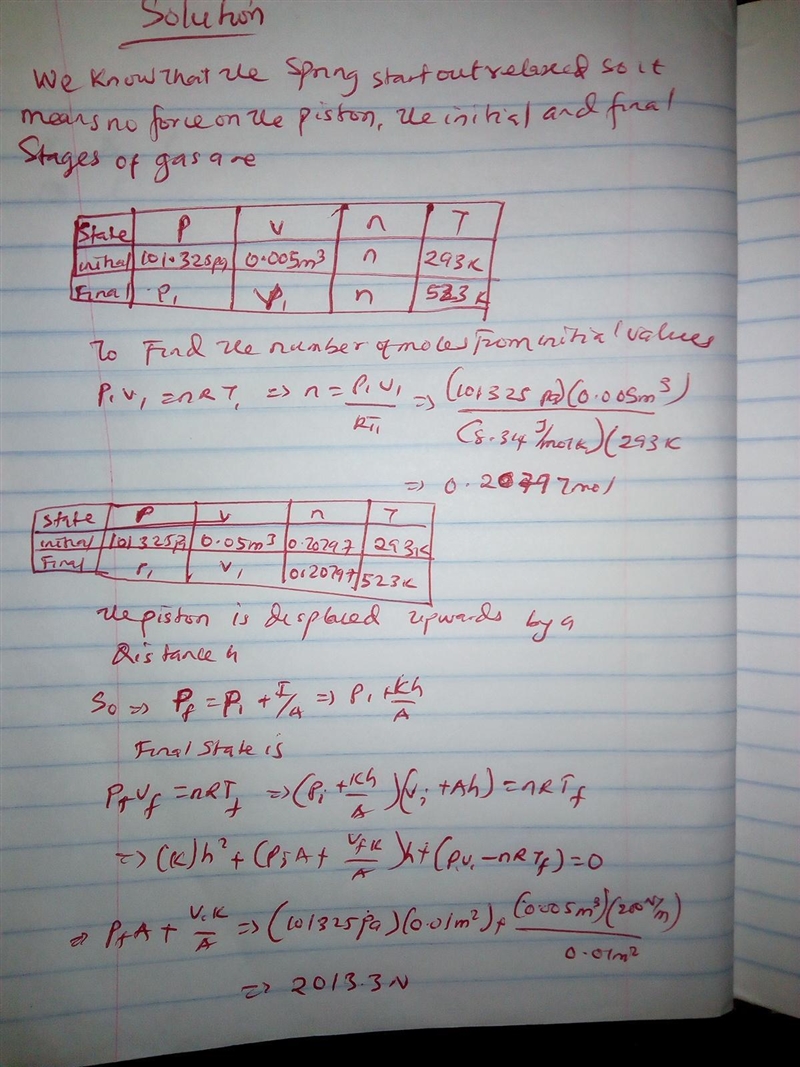 Solution
We Know that the Spring start out relaxed so it
means no force on the piston, the initial and final
Stages of gas are
State P V n T
initial 101.325pa 0.005m³ n 293K
Final P₁ V₁ n 523K
To Find the number of moles From initial values
P₁V₁ = nRT₁ => n = P₁V₁/RT₁ => (101325 pa)(0.005m³)/(8.34 J/molk)(293K
=> 0.20797mol
State P V n T
initial 101325pa 0.05m³ 0.20797 293K
Final P₁ V₁ 0.20797 523K
The piston is displaced upwards by a
distance h
So => Pf = Pi + F/A => Pi + Kh/A
Final State is
PfVf = nRTf => (Pi + Kh/A)(Vi + Ah) = nRTf
=> (K)h² + (PiA + VfK/A)h + (PiVi - nRTf) = 0
=> PfA + ViK/A => (101325pa)(0.01m²) + (0.005m³)(200N/m)/0.01m²
=> 2013.3N